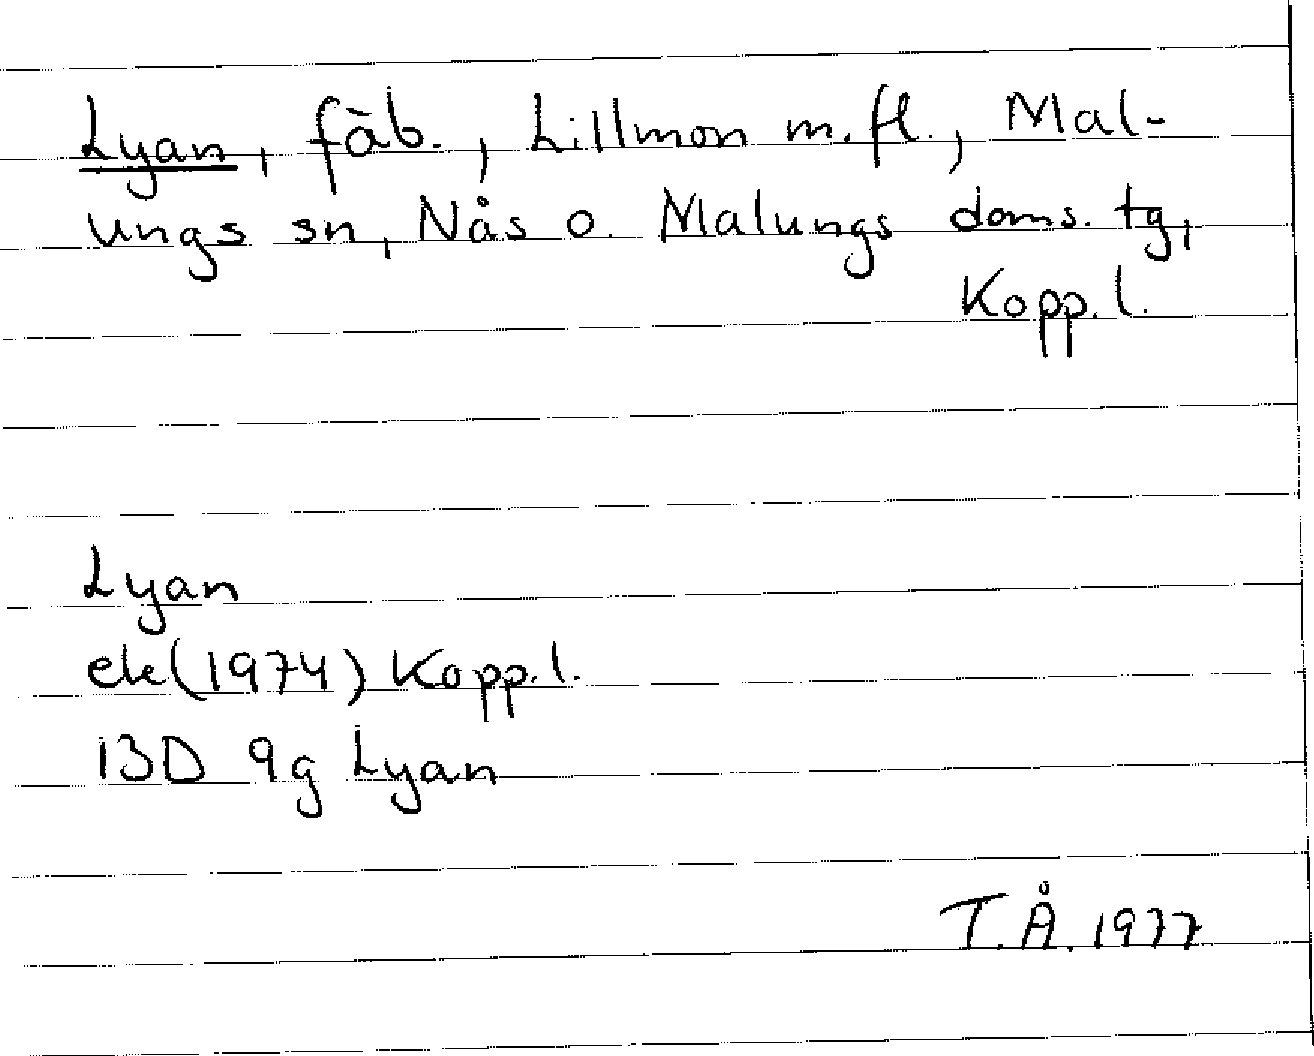 Lyan, fäb., Lillmon m.fl., Mal-
ungs sn, Nås o. Malungs doms. tg,
Kopp. l.
Lyan
ek(1974) Kopp. l.
13D 9g Lyan
T.Å. 1977